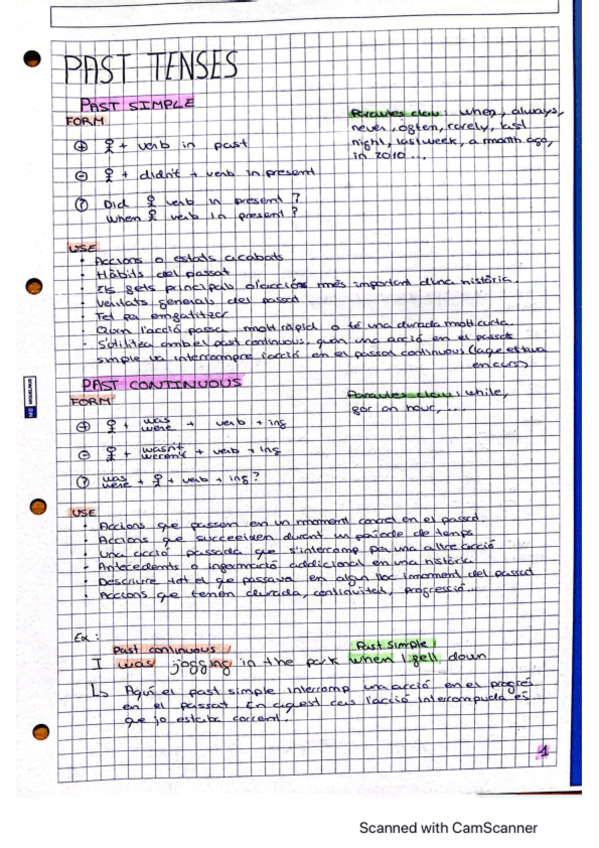 PAST TENSES
PAST SIMPLE
FORM
Paraules clau: when, always,
never, often, rarely, last
night, last week, a month ago,
in 2010...
+ verb in past
+ didn't + verb in present
Did verb in present?
When verb in present?
USE
· Accions o estats acabats
· Hàbits del passat
· Els fets principals o l'acció més important d'una història.
· Veritats generals del passat
· Quan l'acció passa molt ràpid o té una durada molt curta.
· S'utilitza amb el past continuous, quan una acció en el passat
simple va interrompre l'acció en el passat continuous (la que estava
en curs)
PAST CONTINUOUS
FORM
Paraules clau: while,
for an hour, ...
+ was were + verb + ing
+ wasn't weren't + verb + ing
was were + + verb + ing?
USE
· Accions que passen en un moment concret en el passat.
· Accions que succeeixen durant un període de temps
· Una acció passada que s'interromp per una altre acció
· Antecedents o informació addicional en una història
· Descriure tot el que passava en algun lloc i moment del passat
· Accions que tenen durada, continuïtat, progressió...
Ex:
Past continuous
Past Simple
I was jogging in the park when I fell down
Aquí el past simple interromp una acció en el progrés
en el passat. En aquest cas l'acció interrompuda és
que jo estaba corrent.
1
Scanned with CamScanner